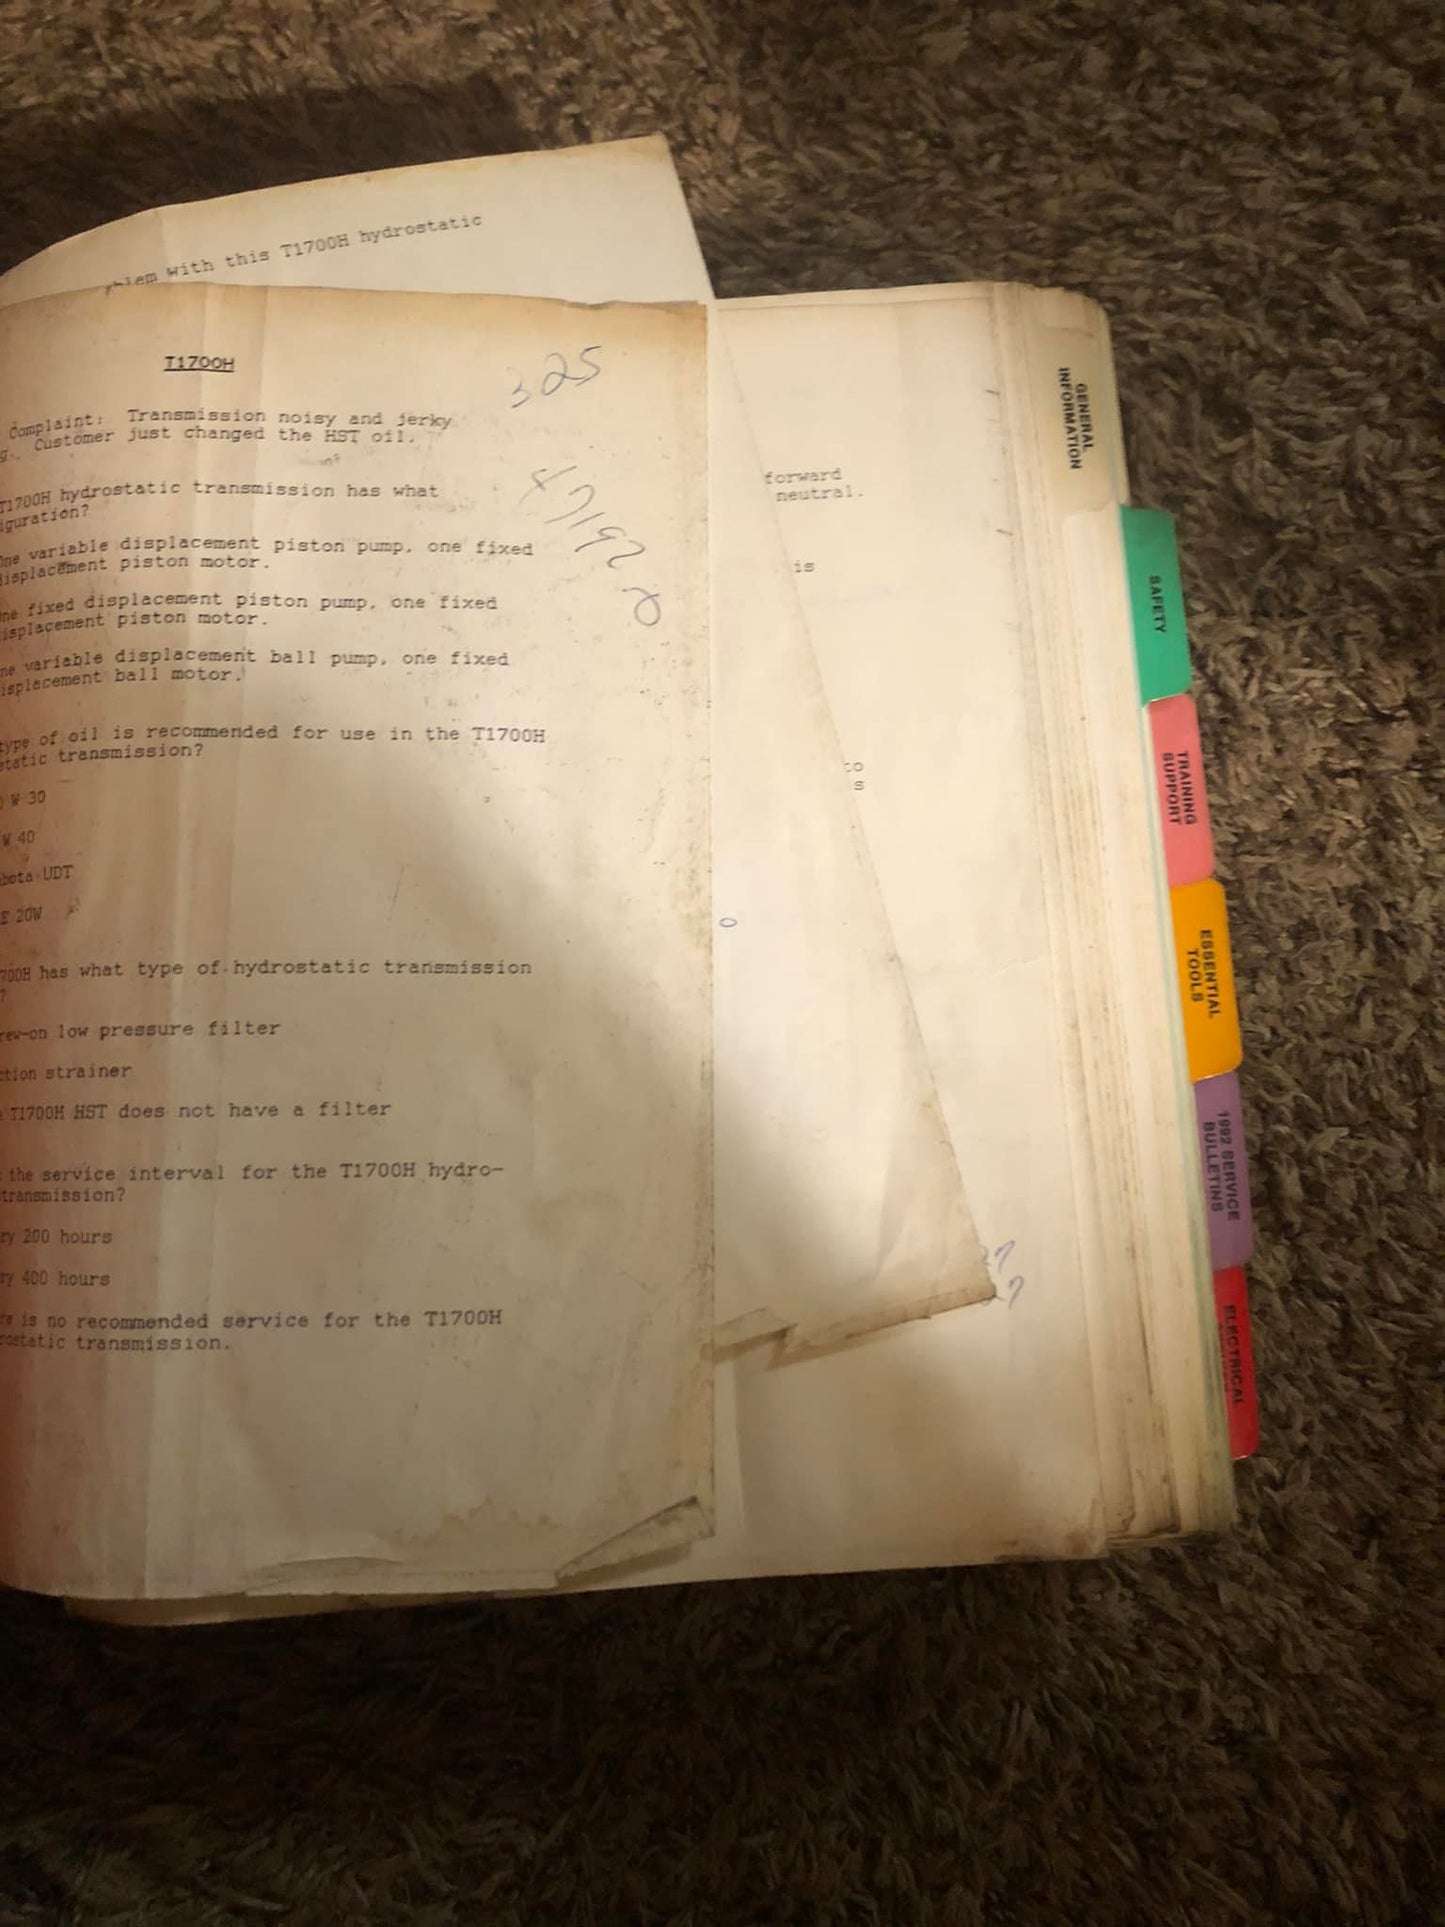 with this T1700H hydrostatic
T1700H
325
Complaint: Transmission noisy and jerky
Customer just changed the HST oil.
T1700H hydrostatic transmission has what
iguration?
One variable displacement piston pump, one fixed
displacement piston motor.
One fixed displacement piston pump, one fixed
isplacement piston motor.
ne variable displacement ball pump, one fixed
isplacement ball motor.
type of oil is recommended for use in the T1700H
static transmission?
W 30
W 40
bota UDT
E 20W
700H has what type of hydrostatic transmission
?
rew-on low pressure filter
ction strainer
T1700H HST does not have a filter
the service interval for the T1700H hydro-
transmission?
ry 200 hours
ry 400 hours
re is no recommended service for the T1700H
rostatic transmission.
forward
neutral.
is
to
s
GENERAL
INFORMATION
SAFETY
TRAINING
SUPPORT
ESSENTIAL
TOOLS
1992 SERVICE
BULLETINS
ELECTRICAL